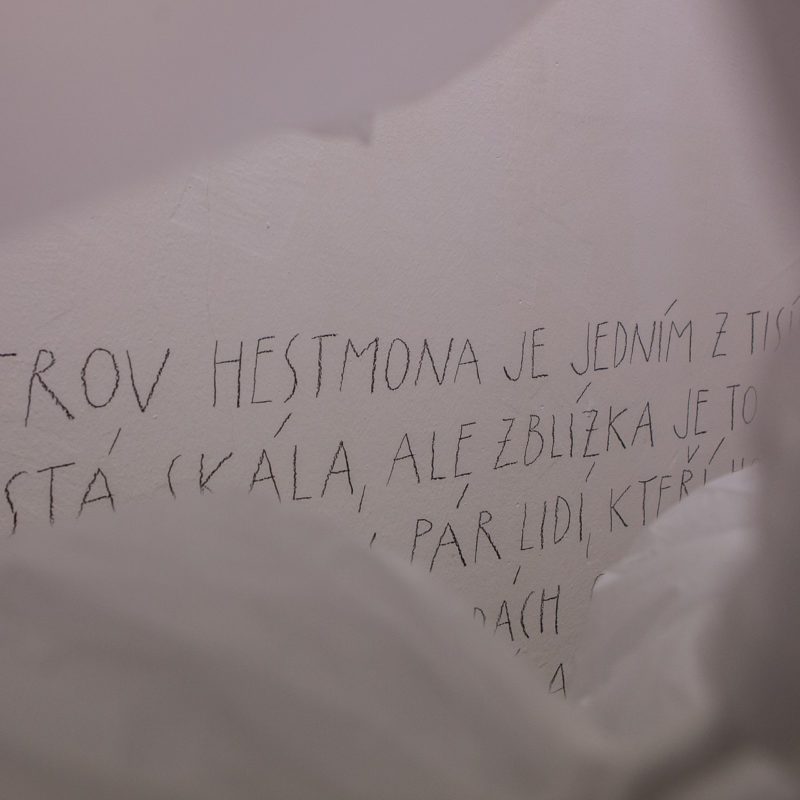 TROV HESTMONA JE JEDNÍM Z TISÍ
STÁ SKÁLA, ALE ZBLÍŽKA JE TO
PÁR LIDÍ, KTEŘÍ
DÁCH
A